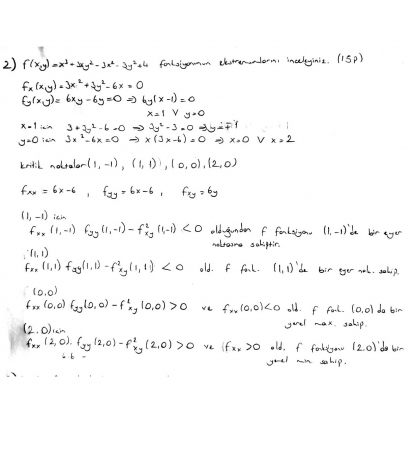 2) f(x,y)=x³+3xy²-3x²-3y²+4 fonksiyonunun ekstremumlarını inceleyiniz. (15p)
fx(x,y)=3x²+3y²-6x=0
fy(x,y)= 6xy-6y=0 ⇒ 6y(x-1)=0
x=1 V y=0
x=1 için 3+3y²-6=0 ⇒ 3y²-3=0 ⇒ y=∓1
y=0 için 3x²-6x=0 ⇒ x(3x-6)=0 ⇒ x=0 V x=2
kritik noktalar (1,-1), (1,1), (0,0), (2,0)
fxx = 6x-6 , fyy = 6x-6 , fxy = 6y
(1,-1) için
fxx (1,-1) fyy(1,-1) - f²xy(1,-1) < 0 olduğundan f fonksiyonu (1,-1)'de bir eyer
noktasına sahiptir.
(1,1)
fxx(1,1) fyy(1,1) - f²xy(1,1) < 0 old. f fonk. (1,1)'de bir eyer nok. sahip.
(0,0)
fxx(0,0) fyy(0,0) - f²xy(0,0) > 0 ve fxx(0,0)<0 old. f fonk. (0,0) da bir
yerel max. sahip.
(2,0) için
fxx (2,0). fyy(2,0) - f²xy(2,0) > 0 ve fxx >0 old. f fonksiyonu (2,0)'da bir
6.6 -
yerel min sahip.